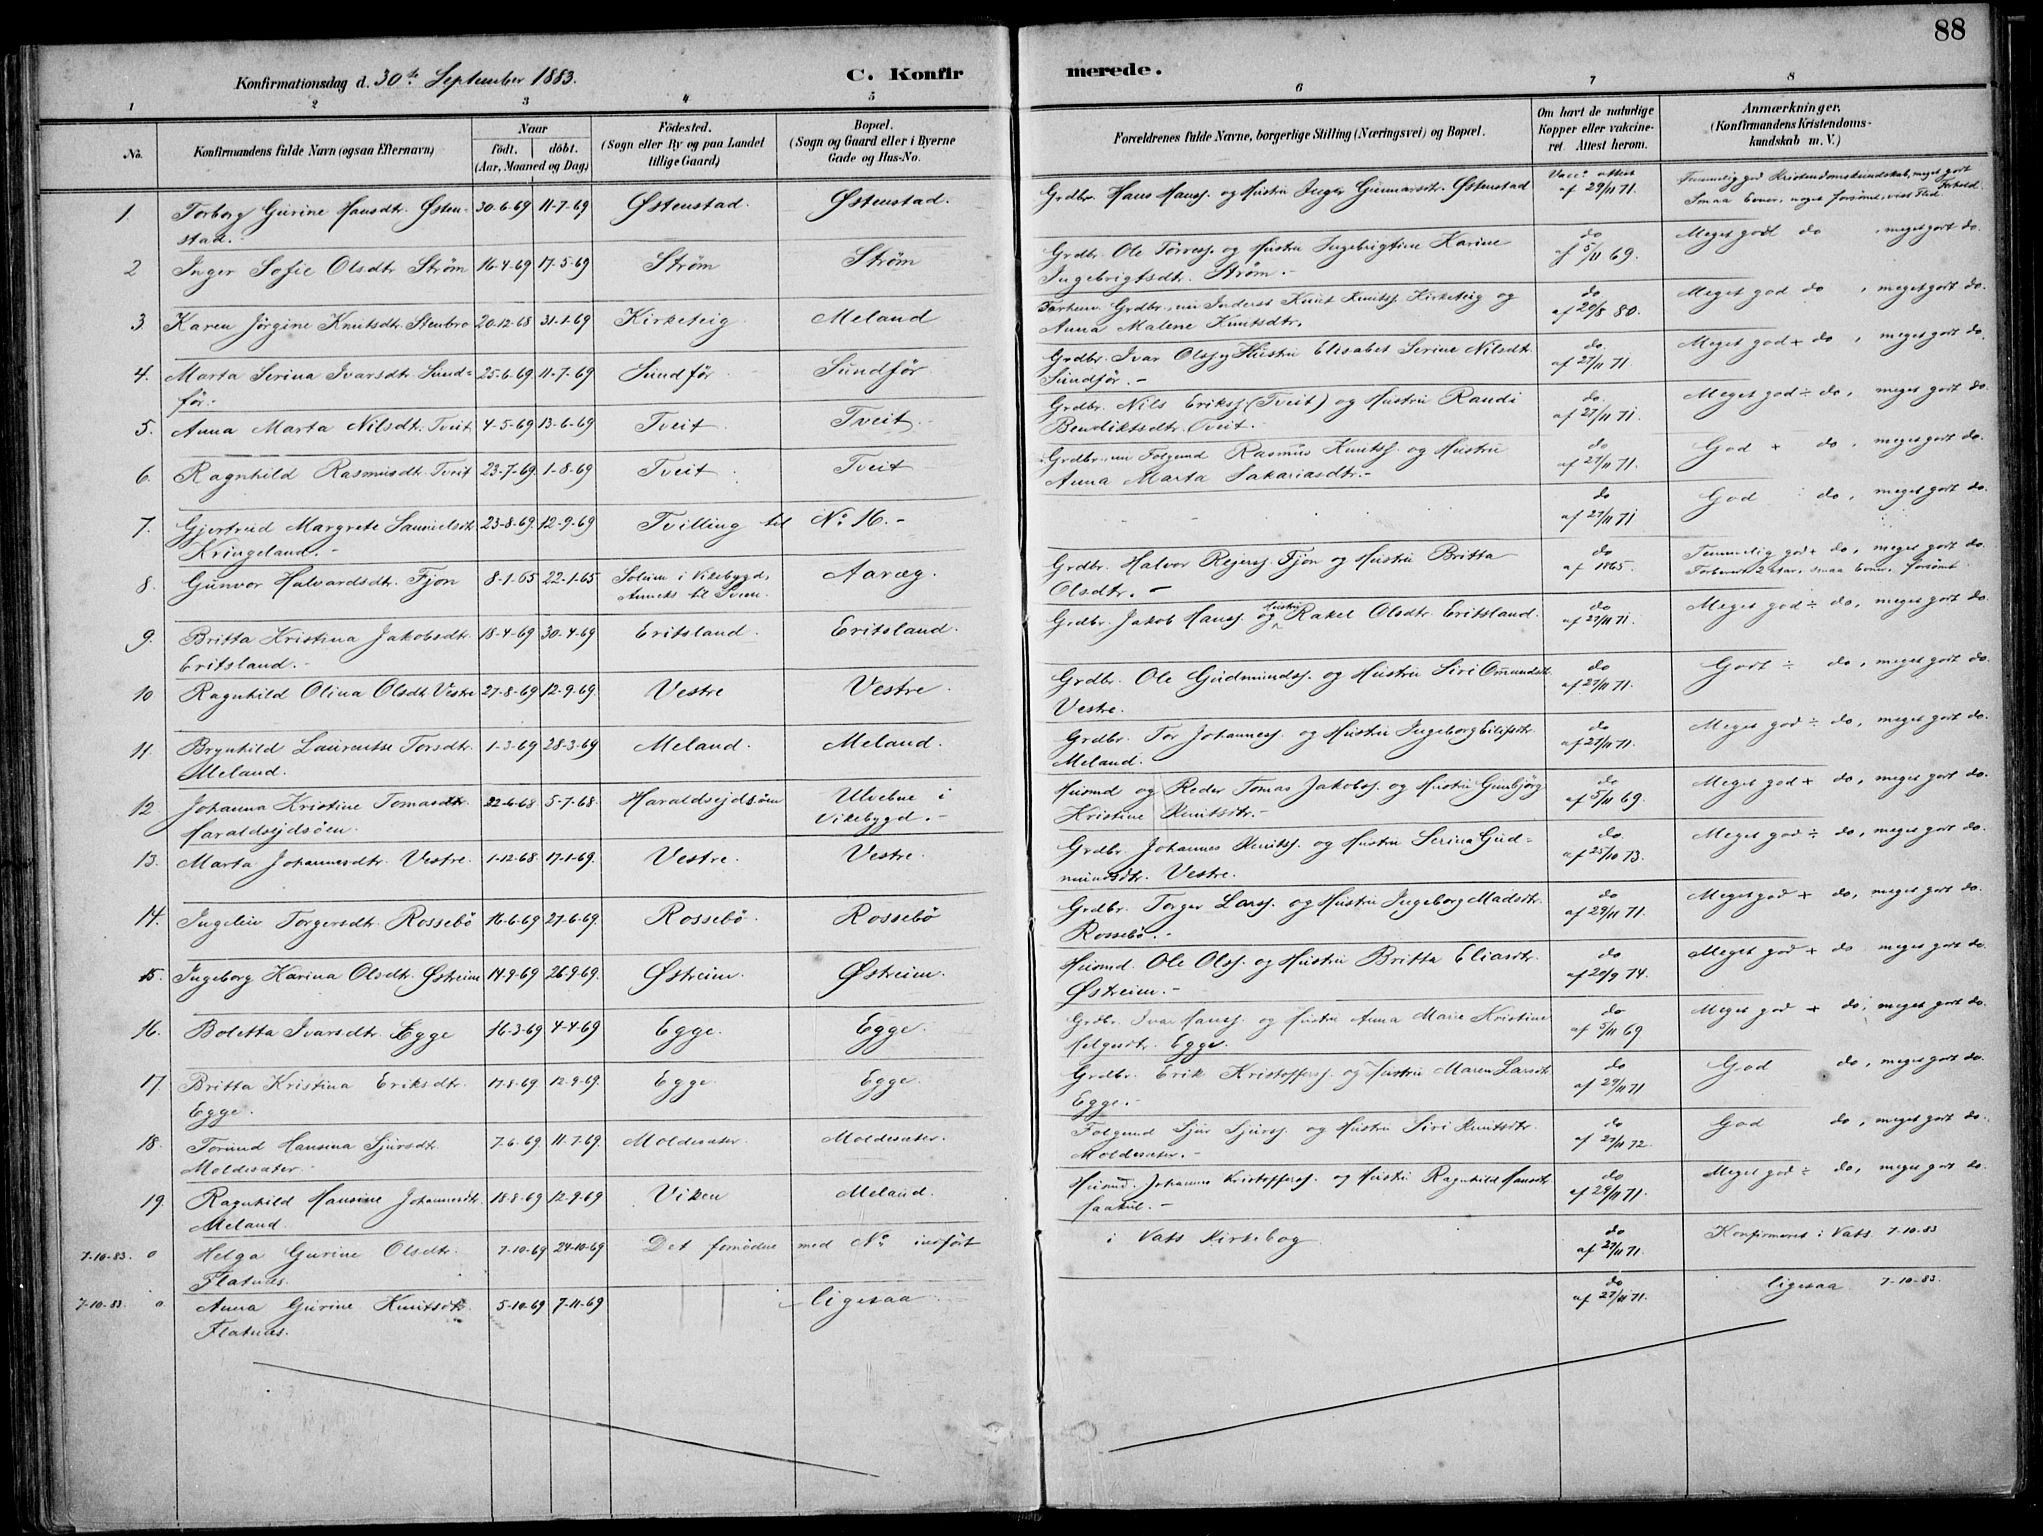 88
Konfirmationsdag d. 30te September 1883.
C. Konfir
merede.
1 2 3 4 5 6 7 8
No.
Konfirmandens fulde Navn (ogsaa Efternavn)
Naar
födt. döbt.
(Aar, Maaned og Dag)
Födested.
(Sogn eller By og paa Landet
tillige Gaard)
Bopæl.
(Sogn og Gaard eller i Byerne
Gade og Hus-No.
Forældrenes fulde Navne, borgerlige Stilling (Næringsvei) og Bopæl.
Om havt de naturlige
Kopper eller vakcine-
ret. Attest herom.
Anmærkninger.
(Konfirmandens Kristendoms-
kundskab m. V.)
1. Torborg Gurine Hansdtr. Østen- 30-6-69 11-7-69 Østenstad. Østenstad. Grdbr. Hans Hanss. og Hustru Inger Gunnarsdtr. Østenstad Vacc. attest af 29/11 71. Temmelig god Kristendomskundskab, meget godt Forhold.
stad. Smaa Evner, noget forsömt, vist Flid
2 Inger Sofie Olsdtr Ström 16-4-69 17-5-69 Ström Ström Grdbr. Ole Torress. og Hustru Ingebrigtine Karine do af 5/11 69. Meget god do, meget godt do.
Ingebrigtsdtr. Ström.-
3. Karen Jörgine Knutsdtr. Stenbro 20-12-68 31-1-69 Kirketeig Meland Forhenv. Grdbr., nu Inderst Knut Knutss. Kirketeig og do af 20/8 80. Meget god do, meget godt do.
Anna Malene Knutsdtr.
4. Marta Serina Ivarsdtr. Sund- 25-6-69 11-7-69 Sundför Sundför Grdbr. Ivar Olss. og Hustru Elisabet Serine Nilsdtr. do. af 27/11 71. Meget god + do, meget godt do.
för.- Sundför.-
5. Anna Marta Nilsdtr. Tveit 4-5-69 13-6-69 Tveit Tveit.- Grdbr. Nils Erikss. (Tveit) og Hustru Randi do. af 27/11 71. Meget god ÷ do, meget godt do.
Bendiktsdtr. Tveit.-
6. Ragnhild Rasmusdtr. Tveit 23-7-69. 1-8-69 Tveit Tveit Grdbr. nu Folgmd Rasmus Knutss. og Hustru do af 27/11 71. God + do, meget godt do.
Anna Marta Sakariasdtr.-
7. Gjertrud Margrete Samuelsdtr. 23-8-69. 12-9-69 Tvilling til No 16.- do af 27/11 71 God do, meget godt do.
Kringeland.-
8. Gunvor Halvardsdtr. Fjon 8-1-65 22-1-65 Solum i Vikebygd, Aaræg. Grdbr. Halvor Rejerss. Fjon og Hustru Britta do af 1865. Temmelig god + do, meget godt do.
Anneks til Sveen. Olsdtr.- Forberedt 2 Aar, smaa Evner, forsömt
9. Britta Kristina Jakobsdtr. 18-4-69 30-4-69 Eritsland. Eritsland. Grdbr. Jakob Hanss. og Hustru Rakel Olsdtr. Eritsland. do af 27/11 71. Meget god ÷ do, meget godt do.
Eritsland.-
10 Ragnhild Olina Olsdtr. Vestre 27-8-69 12-9-69 Vestre Vestre. Grdbr. Ole Gudmundss. og Hustru Siri Omundsdtr. do af 27/11 71. Godt ÷ do, meget godt do.
Vestre.
11. Brynhild Laurentse Torsdtr. 1-3-69 28-3-69 Meland. Meland. Grdbr. Tor Johanness. og Hustru Ingeborg Eilifsdtr. do af 27/11 71. Meget god ÷ do, meget godt do.
Meland. Meland.
12 Johanna Kristine Tomasdtr. 22-6-68 5-7-68. Haraldsejdsöen Ulvebne i Husmd og Reder Tomas Jakobss. og Hustru Gunbjörg do af 5/11 69. Meget god + do, meget godt do.
Haraldsejdsöen. Vikebygd.- Kristine Knutsdtr.-
13. Marta Johannesdtr. Vestre. 1-12-68 17-1-69. Vestre. Vestre. Grdbr. Johannes Knutss. og Hustru Serina Gud- do. af 25/10 73. Meget god ÷ do, meget godt do.
mundsdtr. Vestre.
14. Ingeleiv Torgersdtr. Rossebö 16-6-69 27-6-69. Rossebö. Rossebö Grdbr. Torger Larss. og Hustru Ingeborg Madsdtr. do af 29/11 71. Meget god + do, meget godt do.
Rossebö.-
15. Ingeborg Karina Olsdtr. Østreim 14-9-69 26-9-69. Østreim. Østreim. Husmd. Ole Olss. og Hustru Britta Eliasdtr. do af 20/9 74. Meget god + do meget godt do.
Østreim.-
16. Boletta Ivarsdtr. Egge 16-3-69 4-4-69 Egge. Egge. Grdbr. Ivar Hanss. og Hustru Anna Marie Kristine do af 5/11 69 Meget god + do, meget godt do.
Helgesdtr. Egge.
17. Britta Kristina Eriksdtr. 17-8-69. 12-9-69. Egge. Egge. Grdbr. Erik Kristofferss. og Hustru Maren Larsdtr. do af 29/11 71 God do, meget godt do.
Egge. Egge.-
18. Torund Hansina Sjursdtr. 7-6-69. 11-7-69. Moldesæter. Moldesæter. Folgmd Sjur Sjurss. og Hustru Siri Knutsdtr. do af 27/11 72. God do, meget godt do.
Moldesæter.- Moldesæter.-
19. Ragnhild Hansine Johannesdtr. 18-8-69 12-9-69 Viken Meland. Husmd. Johannes Kristofferss. og Hustru Ragnhild Hansdtr. do af 29/11 71. Meget god ÷ do, meget godt do.
Meland.
7-10-83. o Helga Gurine Olsdtr. 7-10-69 24-10-69 Det fornödne med No indfört i Vats Kirkebog do af 27/11 71. Konfirmeret i Vats 7-10-83
Flatnæs.
7-10-83. o. Anna Gurine Knutsdtr. 5-10-69 7-11-69 ligesaa do af 27/11 71. ligesaa 7-10-83.
Flatnæs.